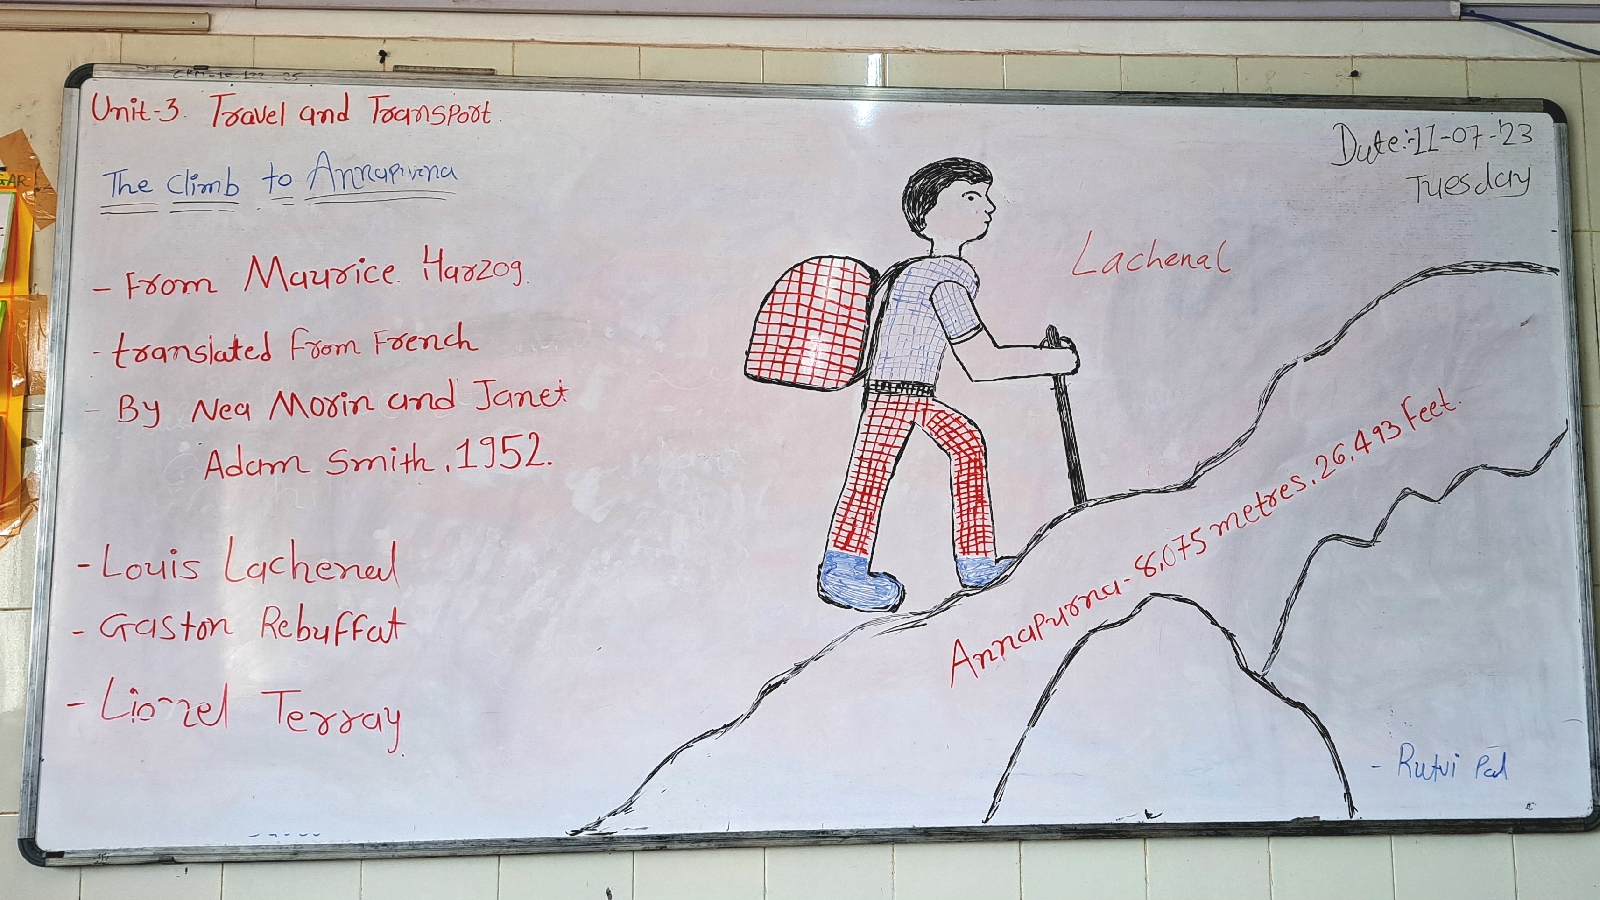 Unit-3. Travel and Transport
Date:-11-07-'23
Tuesday
The Climb to Annapurna
- From Maurice Harzog.
- translated from French
- By Nea Morin and Janet
Adam Smith, 1952.
- Louis Lachenal
- Gaston Rebuffat
- Lionel Terray
Lachenal
Annapurna - 8,075 metres, 26,493 Feet.
- Rutvi Pal